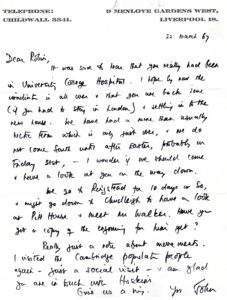 TELEPHONE:
CHILDWALL 3341.
9 MENLOVE GARDENS WEST,
LIVERPOOL 18.
22 March 67
Dear Robin,
It was sad to hear that you really had been
in University College Hospital. I hope by now the
is all over & that you are back home
(if you had to stay in London) & settling in to the
new house. We have had a more than usually
hectic term which is only just over, & we do
not come South until after Easter, probably on
Friday 31st, - I wonder if we should come
& have a look at you on the way down.
We go to for 10 days or so,
& must go down to Chudleigh to have a look
at Pitt House & meet Mr Walker. Have you
got a copy of the for him yet?
Really just a note about movements.
I visited the Cambridge people
again - just a social visit - & am glad
you are in touch with Hoskins.
Give us a ring. Yrs John